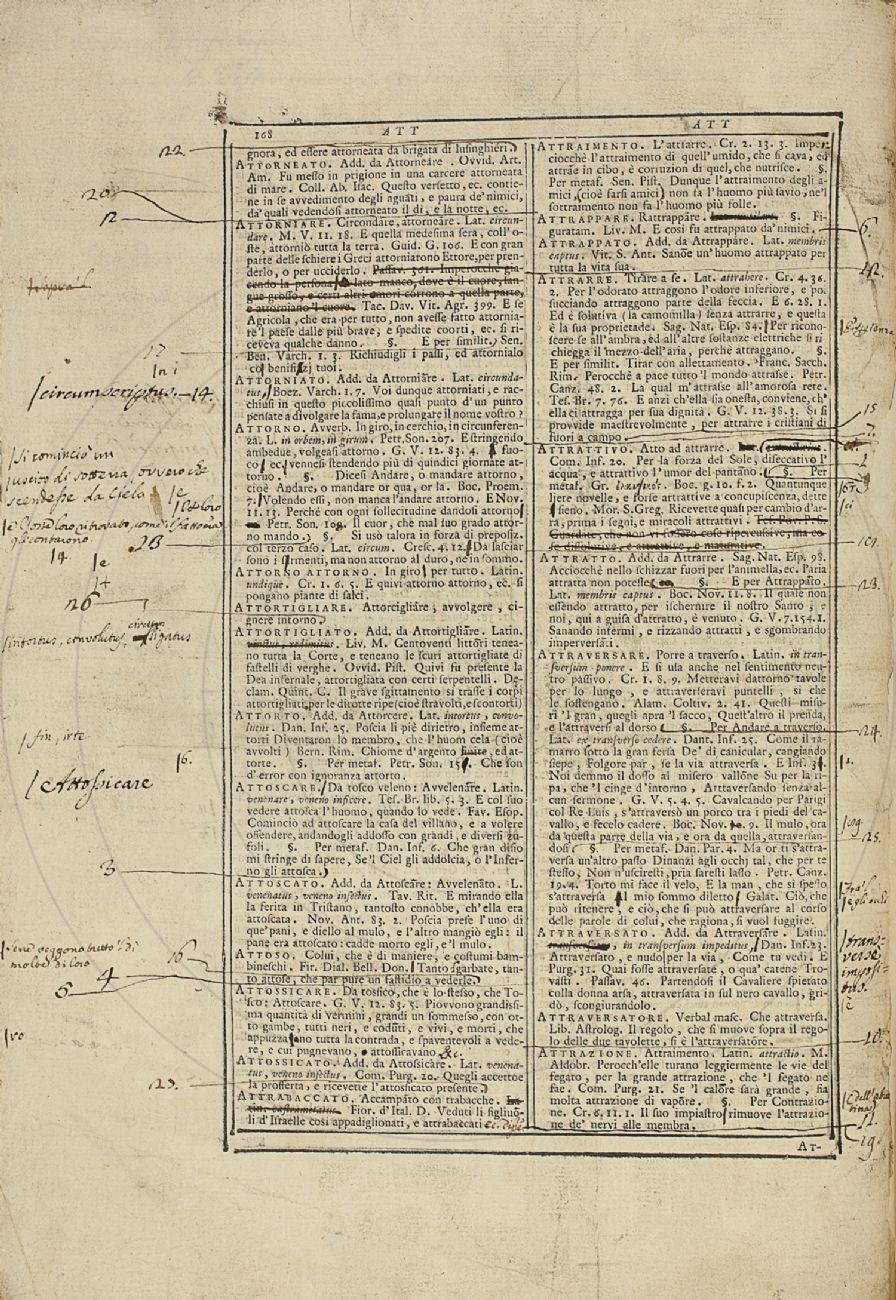 168
ATT
ATT
gnora, ed essere attorneata da brigata di lusinghieri.
ATTORNEATO. Add. da Attorneare. Ovvid. Art.
Am. Fu messo in prigione in una carcere attorneata
di mare. Coll. Ab. Isac. Questo versetto, ec. contie-
ne in se avvedimento degli aguati, e paura de' nimici,
da' quali vedendosi attorneato il dì, e la notte, ec.
ATTORNIARE. Circondare, attorneare. Lat. circun-
dare. M. V. 11. 18. E quella medesima sera, coll' o-
ste, attorniò tutta la terra. Guid. G. 106. E con gran
parte delle schiere i Greci attorniarono Ettore, per pren-
derlo, o per ucciderlo. Passav. 361. Imperocchè gia-
cendo la persona lato manco, dove è il cuore, san-
gue grosso, e certi altri omori corrono a quella parte,
e attorniano 'l cuore. Tac. Dav. Vit. Agr. 399. E se
Agricola, che era per tutto, non avesse fatto attornia-
re 'l paese dalle più brave, e spedite coorti, ec. si ri-
ceveva qualche danno. §. E per similit. Sen.
Ben. Varch. 1. 3. Richiudigli i passi, ed attornialo
co' benifizj tuoi.
ATTORNIATO. Add. da Attorniare. Lat. circunda-
tus. Boez. Varch. 1. 7. Voi dunque attorniati, e rac-
chiusi in questo piccolissimo quasi punto d'un punto
pensate a divolgare la fama, e prolungare il nome vostro?
ATTORNO. Avverb. In giro, in cerchio, in circunferen-
za. L. in orbem, in girum. Petr. Son. 207. E stringendo
ambedue, volgeasi attorno. G. V. 12. 83. 4. fuo-
co ec. vennesi stendendo più di quindici giornate at-
torno. §. Dicesi Andare, o mandare attorno,
cioè Andare, o mandare or qua, or la. Boc. Proem.
7. Volendo essi, non manca l'andare attorno. E Nov.
11. 13. Perchè con ogni sollecitudine dandosi attorno
Petr. Son. 109. Il cuor, che mal suo grado attor-
no mando. §. Si usò talora in forza di preposiz.
col terzo caso. Lat. circum. Cresc. 4. 12. Da lasciar
sono i sermenti, ma non attorno al duro, ne in sommo.
ATTORNO ATTORNO. In giro per tutto. Latin.
undique. Cr. 1. 6. 5. E quivi attorno attorno, ec. si
pongano piante di salci.
ATTORTIGLIARE. Attorcigliare, avvolgere, ci-
gnere intorno.
ATTORTIGLIATO. Add. da Attortigliare. Latin.
vinctus, redimitus. Liv. M. Centoventi littori tenea-
no tutta la Corte, e teneano le scuri attortigliate di
fastelli di verghe. Ovvid. Pist. Quivi fu presente la
Dea infernale, attortigliata con certi serpentelli. De-
clam. Quint. C. Il grave sgittamento si trasse i corpi
attortigliati, per le dirotte ripe (cioè stravolti, e scontorti)
ATTORTO. Add. da Attorcere. Lat. intortus, convo-
lutus. Dan. Inf. 25. Poscia li piè dirietro, insieme at-
torti Diventaron lo membro, che l'huom cela (cioè
avvolti) Bern. Rim. Chiome d'argento finite, ed at-
torte. §. Per metaf. Petr. Son. 15. Che son
d'error con ignoranza attorto.
ATTOSCARE. Da tosco veleno: Avvelenare. Latin.
venenare, veneno inficere. Tes. Br. lib. 5. 3. E col suo
vedere attosca l'huomo, quando lo vede. Fav. Esop.
Cominciò ad attoscare la casa del villano, e a volere
offendere, andandogli addosso con grandi, e diversi zu-
foli. §. Per metaf. Dan. Inf. 6. Che gran disio
mi stringe di sapere, Se 'l Ciel gli addolcia, o l'Infer-
no gli attosca.
ATTOSCATO. Add. da Attoscare: Avvelenato. L.
venenatus, veneno infectus. Tav. Rit. E mirando ella
la ferita in Tristano, tantosto conobbe, ch'ella era
attoscata. Nov. Ant. 83. 2. Poscia prese l'uno di
que' pani, e diello al mulo, e l'altro mangiò egli: il
pane era attoscato: cadde morto egli, e 'l mulo.
ATTOSO. Colui, che è di maniere, e costumi bam-
bineschi. Fir. Dial. Bell. Don. Tanto sgarbate, tan-
to attose, che par pure un fastidio a vederle.
ATTOSSICARE. Da tossico, che è lo stesso, che To-
sco: Attoscare. G. V. 12. 83. 5. Piovvono grandissi-
ma quantità di vermini, grandi un sommesso, con ot-
to gambe, tutti neri, e coduti, e vivi, e morti, che
appuzzano tutta la contrada, e spaventevoli a vede-
re, e cui pugnevano, attossicavano &c.
ATTOSSICATO. Add. da Attossicare. Lat. venena-
tus, veneno infectus. Com. Purg. 20. Quegli accettoe
la profferta, e ricevette l'attossicato presente.
ATTRABACCATO. Accampato con trabacche.
Fior. d'Ital. D. Veduti li figliuo-
li d'Israelle così appadiglionati, e attrabaccati ec.
ATTRAIMENTO. L'attrarre. Cr. 2. 13. 3. Imper-
ciocchè l'attraimento di quell'umido, che si cava, ed
attrae in cibo, è corruzion di quel, che nutrisce. §.
Per metaf. Sen. Pist. Dunque l'attraimento degli a-
mici, (cioè farsi amici) non fa l'huomo più savio, ne 'l
sottraimento non fa l'huomo più folle.
ATTRAPPARE. Rattrappare. §. Fi-
guratam. Liv. M. E così fu attrappato da' nimici.
ATTRAPPATO. Add. da Attrappare. Lat. membris
captus. Vit. S. Ant. Sanòe un' huomo attrappato per
tutta la vita sua.
ATTRARRE. Tirare a se. Lat. attrahere. Cr. 4. 36.
2. Per l'odorato attraggono l'odore inferiore, e po.
succiando attraggono parte della feccia. E 6. 28. 1.
Ed è solutiva (la camomilla) senza attrarre, e questa
è la sua proprietade. Sag. Nat. Esp. 84. Per ricono-
scere se all'ambra, ed all'altre sostanze elettriche si ri-
chiegga il mezzo dell'aria, perchè attraggano. §.
E per similit. Tirar con allettamento. Franc. Sacch.
Rim. Perocchè a pace tutto 'l mondo attrasse. Petr.
Canz. 48. 2. La qual m'attrasse all'amorosa rete.
Tes. Br. 7. 76. E anzi ch'ella sia onesta, conviene, ch'
ella ci attragga per sua dignità. G. V. 12. 38. 3. Si si
provvide maestrevolmente, per attrarre i cristiani di
fuori a campo.
ATTRATTIVO. Atto ad attrarre.
Com. Inf. 20. Per la forza del Sole, diseccativo l'
acqua, e attrattivo l'umor del pantano. §. Per
metaf. Gr. Boc. g. 10. f. 2. Quantunque
liete novelle, e forse attrattive a concupiscenza, dette
sieno. Mor. S. Greg. Ricevette quasi per cambio d'ar-
ra, prima i segni, e miracoli attrattivi. Tes. Pov. P. S.
Guardate, che non vi
ATTRATTO. Add. da Attrarre. Sag. Nat. Esp. 98.
Acciocchè nello schizzar fuori per l'animella, ec. l'aria
attratta non potesse, ec. §. E per Attrappato.
Lat. membris captus. Boc. Nov. 11. 8. Il quale non
essendo attratto, per ischernire il nostro Santo, e
noi, qui a guisa d'attratto, è venuto. G. V. 7. 154. 1.
Sanando infermi, e rizzando attratti, e sgombrando
imperversati.
ATTRAVERSARE. Porre a traverso. Latin. in tran-
sversum ponere. E si usa anche nel sentimento neu-
tro passivo. Cr. 1. 8. 9. Metteravi dattorno tavole
per lo lungo, e attraverseravi puntelli, sì che
le sostengano. Alam. Coltiv. 2. 41. Questi misu-
ri 'l gran, quegli apra 'l sacco, Quest'altro il prenda,
e l'attraversi al dorso. §. Per Andare a traverso.
Lat. ex transverso cedere. Dant. Inf. 25. Come il ra-
marro sotto la gran fersa De' dì canicular, cangiando
siepe, Folgore par, se la via attraversa. E Inf. 31.
Noi demmo il dosso al misero vallone Su per la ri-
pa, che 'l cinge d'intorno, Attraversando senza al-
cun sermone. G. V. 5. 4. 5. Cavalcando per Parigi
col Re Luis, s'attraversò un porco tra i piedi del ca-
vallo, e fecelo cadere. Boc. Nov. 9. Il mulo, ora
da questa parte della via, e ora da quella, attraversan-
dosi §. Per metaf. Dan. Par. 4. Ma or ti s'attra-
versa un'altro passo Dinanzi agli occhj tal, che per te
stesso, Non n'usciresti, pria saresti lasso. Petr. Canz.
19. 4. Torto mi face il velo, E la man, che sì spesso
s'attraversa Al mio sommo diletto. Galat. Ciò, che
può ritenere, e ciò, che si può attraversare al corso
delle parole di colui, che ragiona, si vuol fuggire.
ATTRAVERSATO. Add. da Attraversare. Latin.
transversus, in transversum impeditus, Dan. Inf. 23.
Attraversato, e nudo per la via, Come tu vedi. E
Purg. 31. Quai fosse attraversate, o qua' catene Tro-
vasti. Passav. 46. Partendosi il Cavaliere spietato
colla donna arsa, attraversata in sul nero cavallo, gri-
dò, scongiurandolo.
ATTRAVERSATORE. Verbal masc. Che attraversa.
Lib. Astrolog. Il regolo, che si muove sopra il rego-
lo delle due tavolette, si è l'attraversatore.
ATTRAZIONE. Attraimento. Latin. attractio. M.
Aldobr. Perocch'elle turano leggiermente le vie del
fegato, per la grande attrazione, che 'l fegato ne
fae. Com. Purg. 21. Se 'l calore sarà grande, fia
molta attrazione di vapore. §. Per Contrazio-
ne. Cr. 6. 11. 1. Il suo impiastro rimuove l'attrazio-
ne de' nervi alle membra.
AT-
22
20
12
17
circumscriptus. 14.
Si cominciò un
23
26
intortus, convolutus, ligatus
16.
Attossicare
3
16
4
5
23.
6.
12.
15
2
101.
23.
24.
25.
10.
11.